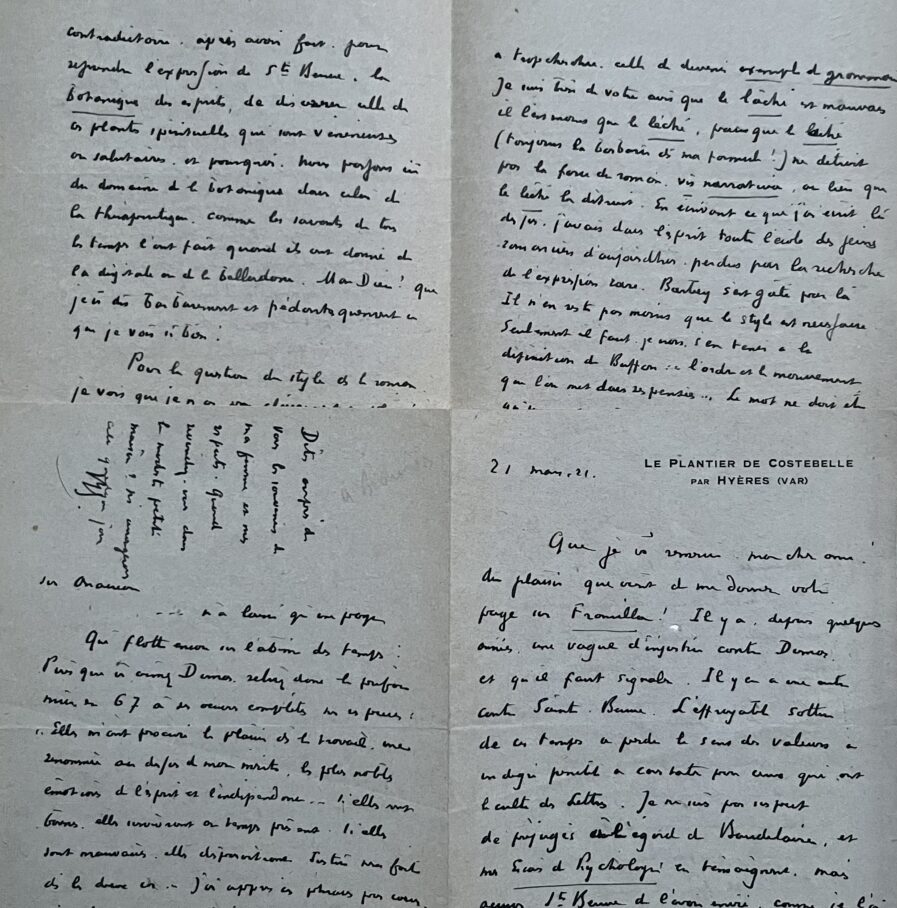 contradictoire. après avoir fait. pour
reprendre l'expression de Ste Beuve. la
botanique des esprits, de discerner celles de
ces plantes spirituelles qui sont vénéneuses
ou salutaires. et pourquoi. Nous passons ici
du domaine de la botanique dans celui de
la thérapeutique. comme les savants de tous
les temps l'ont fait quand ils ont donné de
la digitale ou de la belladone. Mon Dieu! que
je dis barbarement et pédantesquement ce
que je vois si bien!
Pour la question du style et le roman
je vois que je n'ai
a trop chercher. celle de devenir exemple de grammaire
Je suis bien de votre avis que le lâché est mauvais
il l'est moins que le léché, parce que le lâché
(toujours la barbarie de ma formule!) ne détruit
pas la force du roman. vis narrativa, au lieu que
le léché la détruit. En écrivant ce que j'ai écrit là
dessus. j'avais dans l'esprit toute l'école des jeunes
romanciers d'aujourd'hui. perdus par la recherche
de l'expression rare. s'est gâté par là
Il n'en reste pas moins que le style est nécessaire
Seulement il faut. je crois, s'en tenir à la
définition de Buffon: "l'ordre et le mouvement
que l'on met dans ses pensées... Le mot ne doit
Dites auprès de
vous le souvenir de
ma femme et mes
respects. Quand
reviendrez-vous dans
la modeste petite
maison?
sur Anacréon
... n'a laissé qu'une page
Qui flotte encore sur l'abîme des temps:
Puis que vous aimez Dumas, relisez donc la préface
mise en 67 à ses œuvres complètes
"Elles m'ont procuré le plaisir et le travail, une
renommée au dessus de mon mérite, les plus nobles
émotions de l'esprit et l'indépendance... Si elles sont
bonnes. elles survivront au temps présent. Si elles
sont mauvaises. elles disparaîtront.
J'ai appris ces phrases par cœur
21 mars. 21.
LE PLANTIER DE COSTEBELLE
PAR HYÈRES (VAR)
Que je vous remercie. mon cher ami!
du plaisir que vient de me donner votre
page sur Froufrou! Il y a, depuis quelques
années, une vague d'injustice contre Dumas.
et qu'il faut signaler. Il y en a une autre
contre Sainte-Beuve. L'effroyable sottise
de ce temps a perdu le sens des valeurs à
un degré pénible à constater pour ceux qui ont
le culte des Lettres. Je ne suis pas suspect
de préjugés à l'égard de Baudelaire, et
mes Essais de Psychologie en témoignent. mais
accuser Ste Beuve de l'avoir envié. comme je l'ai